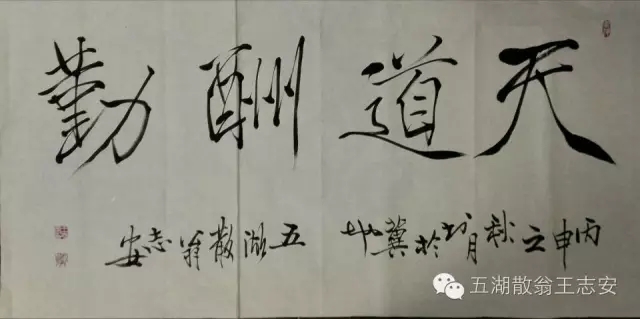 天道酬勤
丙申之秋月於冀五湖散翁志安
五湖散翁王志安